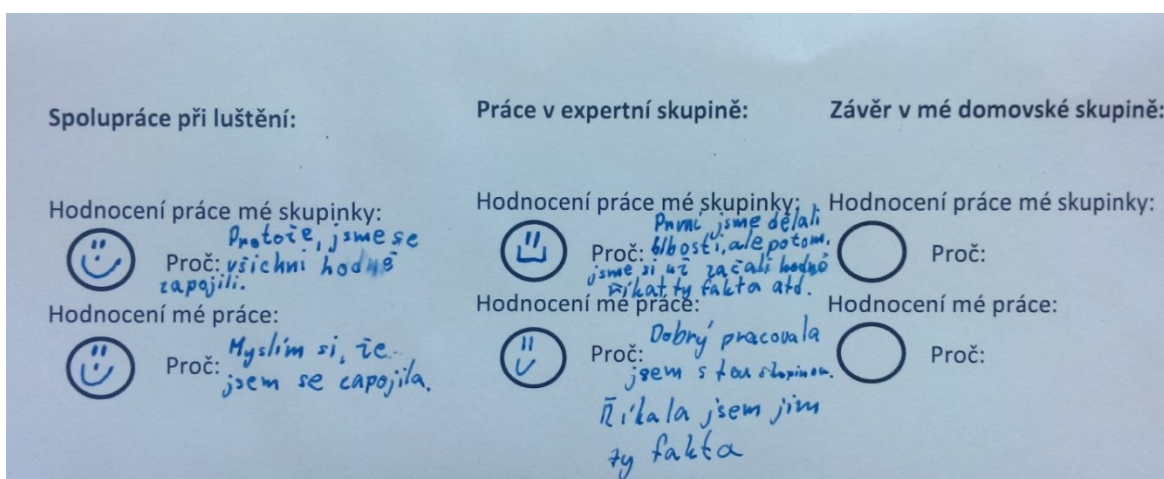 Spolupráce při luštění:
Hodnocení práce mé skupinky:
Protože, jsme se
Proč: všichni hodně
zapojili.
Hodnocení mé práce:
Myslím si, že
Proč: jsem se zapojila.
Práce v expertní skupině:
Hodnocení práce mé skupinky:
První jsme dělali
Proč: blbosti, ale potom,
jsme si už začali hodně
říkat ty fakta atd.
Hodnocení mé práce:
Dobrý pracovala
Proč: jsem s tou
Říkala jsem jim
ty fakta
Závěr v mé domovské skupině:
Hodnocení práce mé skupinky:
Proč:
Hodnocení mé práce:
Proč: